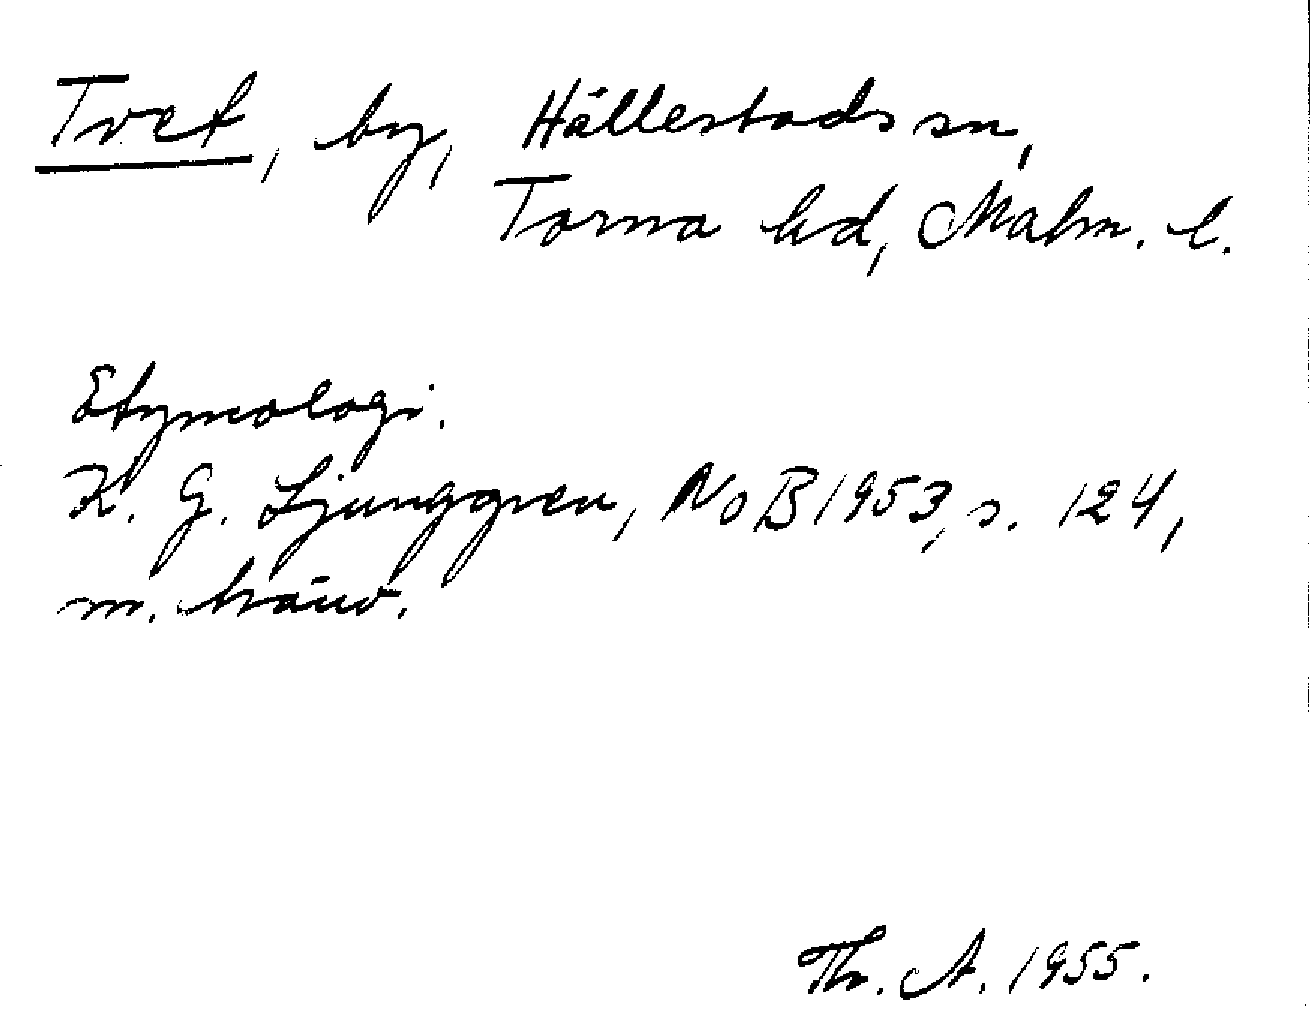 Tvet, by, Hällestads sn,
Torna hd, Malm. l.
Etymologi.
K. G. Ljunggren, NoB 1953, s. 124,
m. hänv.
Th. A. 1955.